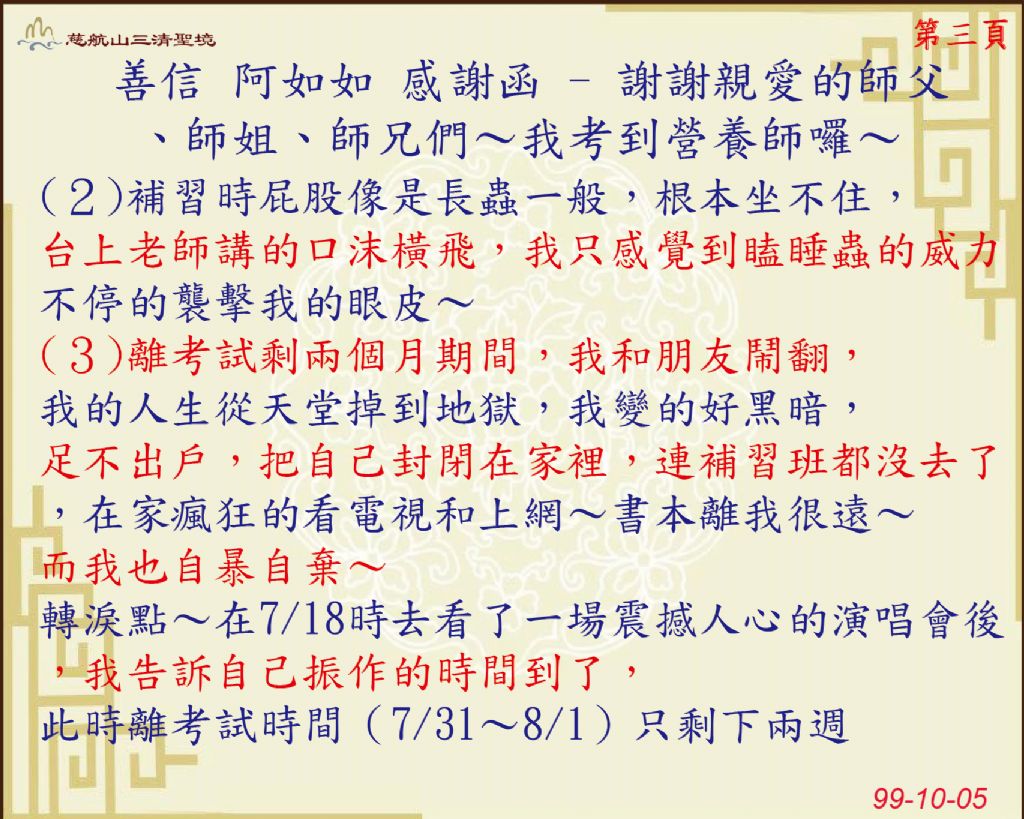 慈航山三清聖境
第三頁
善信 阿如如 感謝函 - 謝謝親愛的師父
、師姐、師兄們～我考到營養師囉～
(２)補習時屁股像是長蟲一般，根本坐不住，
台上老師講的口沫橫飛，我只感覺到瞌睡蟲的威力
不停的襲擊我的眼皮～
(３)離考試剩兩個月期間，我和朋友鬧翻，
我的人生從天堂掉到地獄，我變的好黑暗，
足不出戶，把自己封閉在家裡，連補習班都沒去了
，在家瘋狂的看電視和上網～書本離我很遠～
而我也自暴自棄～
轉淚點～在7/18時去看了一場震撼人心的演唱會後
，我告訴自己振作的時間到了，
此時離考試時間（7/31～8/1）只剩下兩週
99-10-05